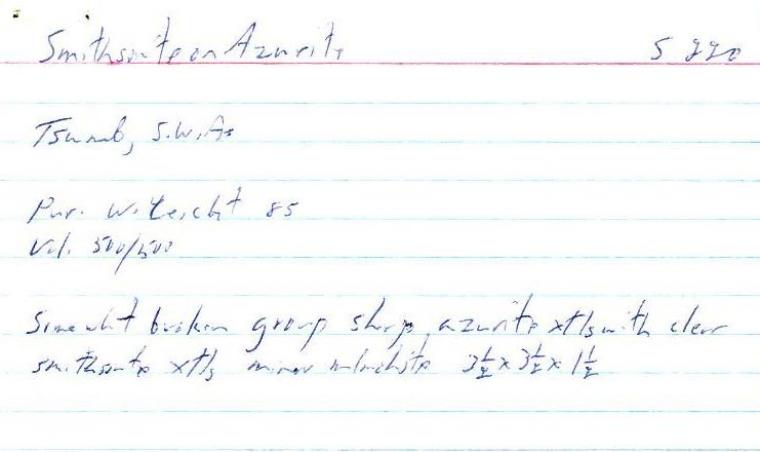 Smithsonite on Azurite S 220
Tsumeb, S.W.Af
Pur. W. 85
Val. 500/500
Somewhat broken group sharp azurite xtls with clear
smithsonite xtls minor malachite 3½ x 3½ x 1½